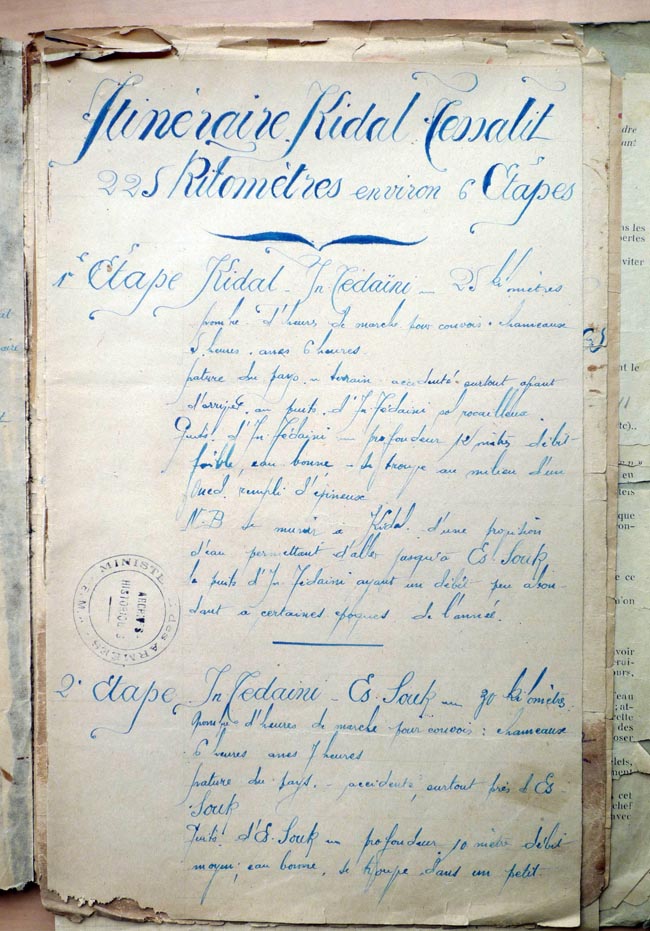 Itinéraire Kidal Tessalit
225 Kilomètres environ 6 Étapes
1e Étape Kidal - In Tédaïni - 25 kilomètres
nombre d'heures de marche pour convois : chameaux
5 heures - anes 6 heures.
nature du pays - terrain accidenté surtout avant
d'arriver au puits d'In Tédaini sol rocailleux.
Puits d'In Tédaini - profondeur 12 mètres débit
faible, eau bonne - se trouve au milieu d'un
oued rempli d'épineux
N.B se munir a Kidal d'une provision
d'eau permettant d'aller jusqu'à Es-Souk
le puits d'In Tédaini ayant un débit peu abon-
dant a certaines époques de l'année.
MINISTE des ARMÉES
E.M.
ARCHIVES
HISTORIQUES
2e Étape In Tédaini - Es-Souk 30 kilomètres.
nombre d'heures de marche pour convois : chameaux
6 heures anes 7 heures
nature du pays - accidenté, surtout près d'Es-
Souk
Puits d'Es-Souk profondeur 10 mètres débit
moyen, eau bonne, se trouve dans un petit